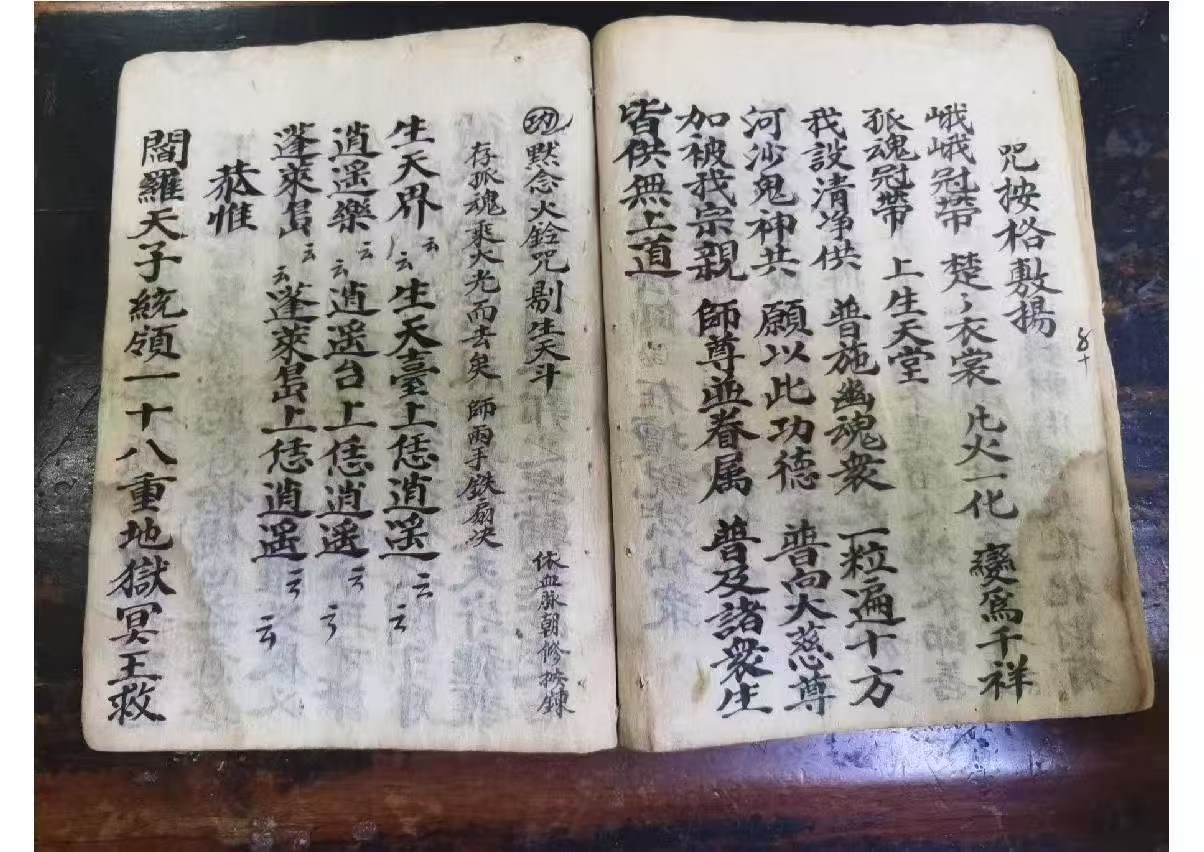 咒按格敷揚
峨峨冠帶 楚〻衣裳 片火一化 變爲千祥
孤魂冠帶 上生天堂
我設清净供 普施幽魂衆 一粒遍十方
河沙鬼神共 願以此功德 普向大慈尊
加被我宗親 師尊並眷属 普及諸衆生
皆供無上道
功 黙念火鈴咒剔生天斗 依血脉朝修拔鍊
存孤魂乘火光而去矣 師兩手鉄扇决
生天界 云云 生天臺上恁逍遥 云云
逍遥樂 云云 逍遥台上恁逍遥 云云
蓬萊島 云云 蓬萊島上恁逍遥 云云
恭惟
閻羅天子統領一十八重地獄冥王救